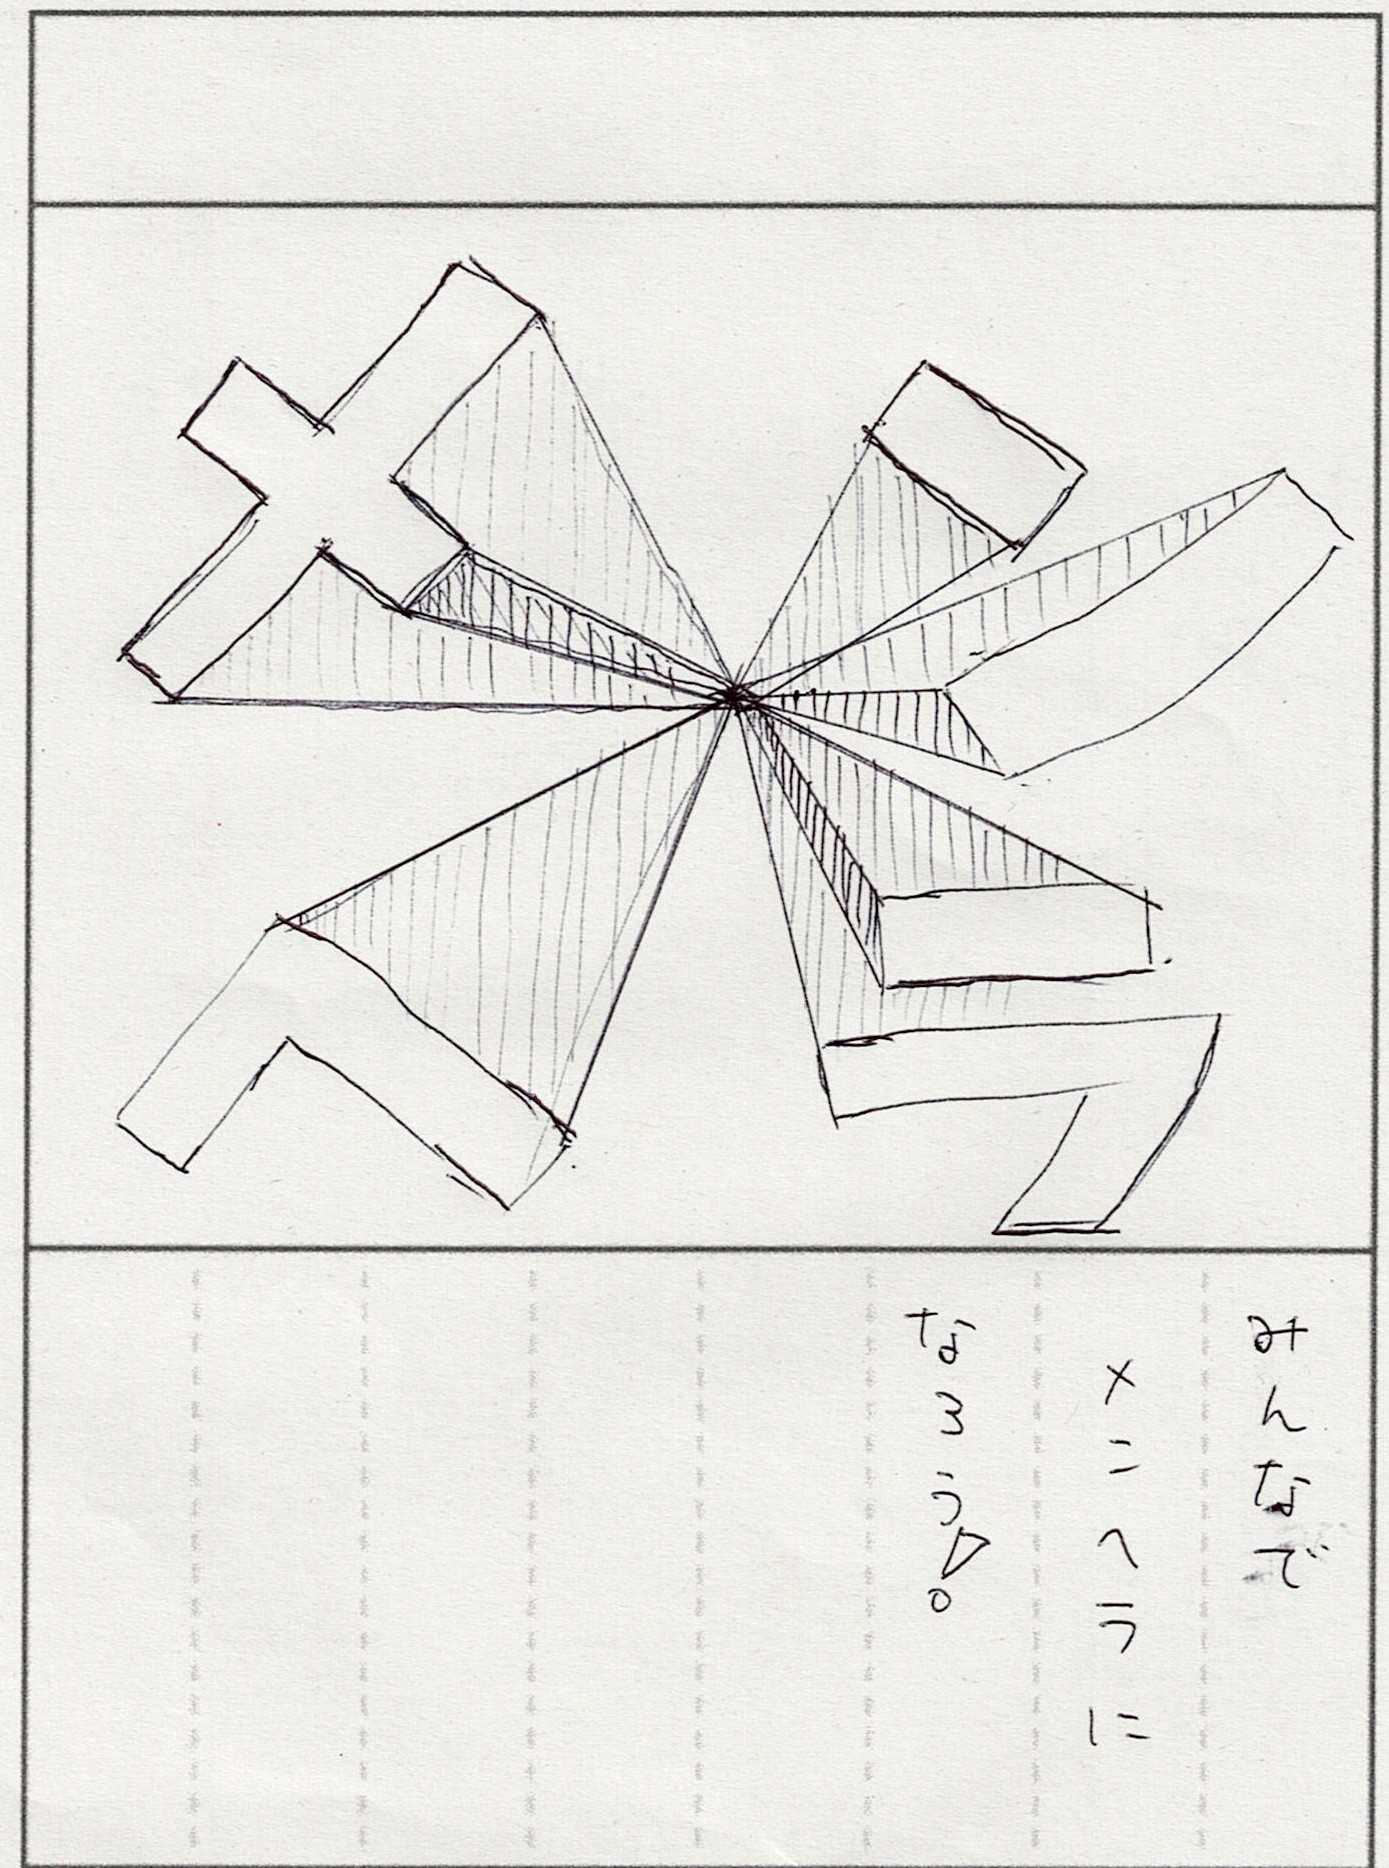 メン
ヘラ
みんなで
メンヘラに
なろう!